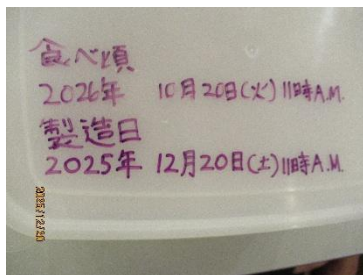 食べ頃
2026年 10月20日(火)11時A.M.
製造日
2025年 12月20日(土)11時A.M.
2025/12/20